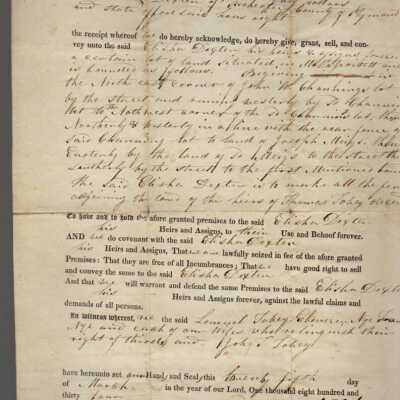 and state
the receipt whereof we do hereby acknowledge, do hereby give, grant, sell, and con-
vey unto the said Elisha Dexter his heirs & assigns forever
a certain lot of land situated in
is bounded as follows. Beginning
the North east corner of John W. Channings lot
by the street and runing westerly by Sd Channings
lot to Northwest corner of the Sd Channings lot, then
Northerly & Westerly in a line with the rear fence of
said Channing lot to land of Joseph Meigs, then
Easterly by the land of Sd Meigs to the street then
southerly by the street to the first Mentioned bound
the said Elisha Dexter is to make all the fence
adjoining the land of the heirs of Thomas Tobey
To have and to hold the afore granted premises to the said Elisha Dexter
his Heirs and Assigns, to their Use and Behoof forever.
AND we do covenant with the said Elisha Dexter
his Heirs and Assigns, That we are lawfully seized in fee of the afore granted
Premises: That they are free of all Incumbrances; That we have good right to sell
and convey the same to the said Elisha Dexter
And that we will warrant and defend the same Premises to the said Elisha Dexter
his Heirs and Assigns forever, against the lawful claims and
demands of all persons.
In witness whereof, we the said Lemuel Tobey Ebenezer Nye
Nye and each of our Wifes who relinquish their
right of thirds and John S Tobey
have hereunto set our Hands and Seals this twenty fifth day
of March in the year of our Lord, One thousand eight hundred and
thirty four